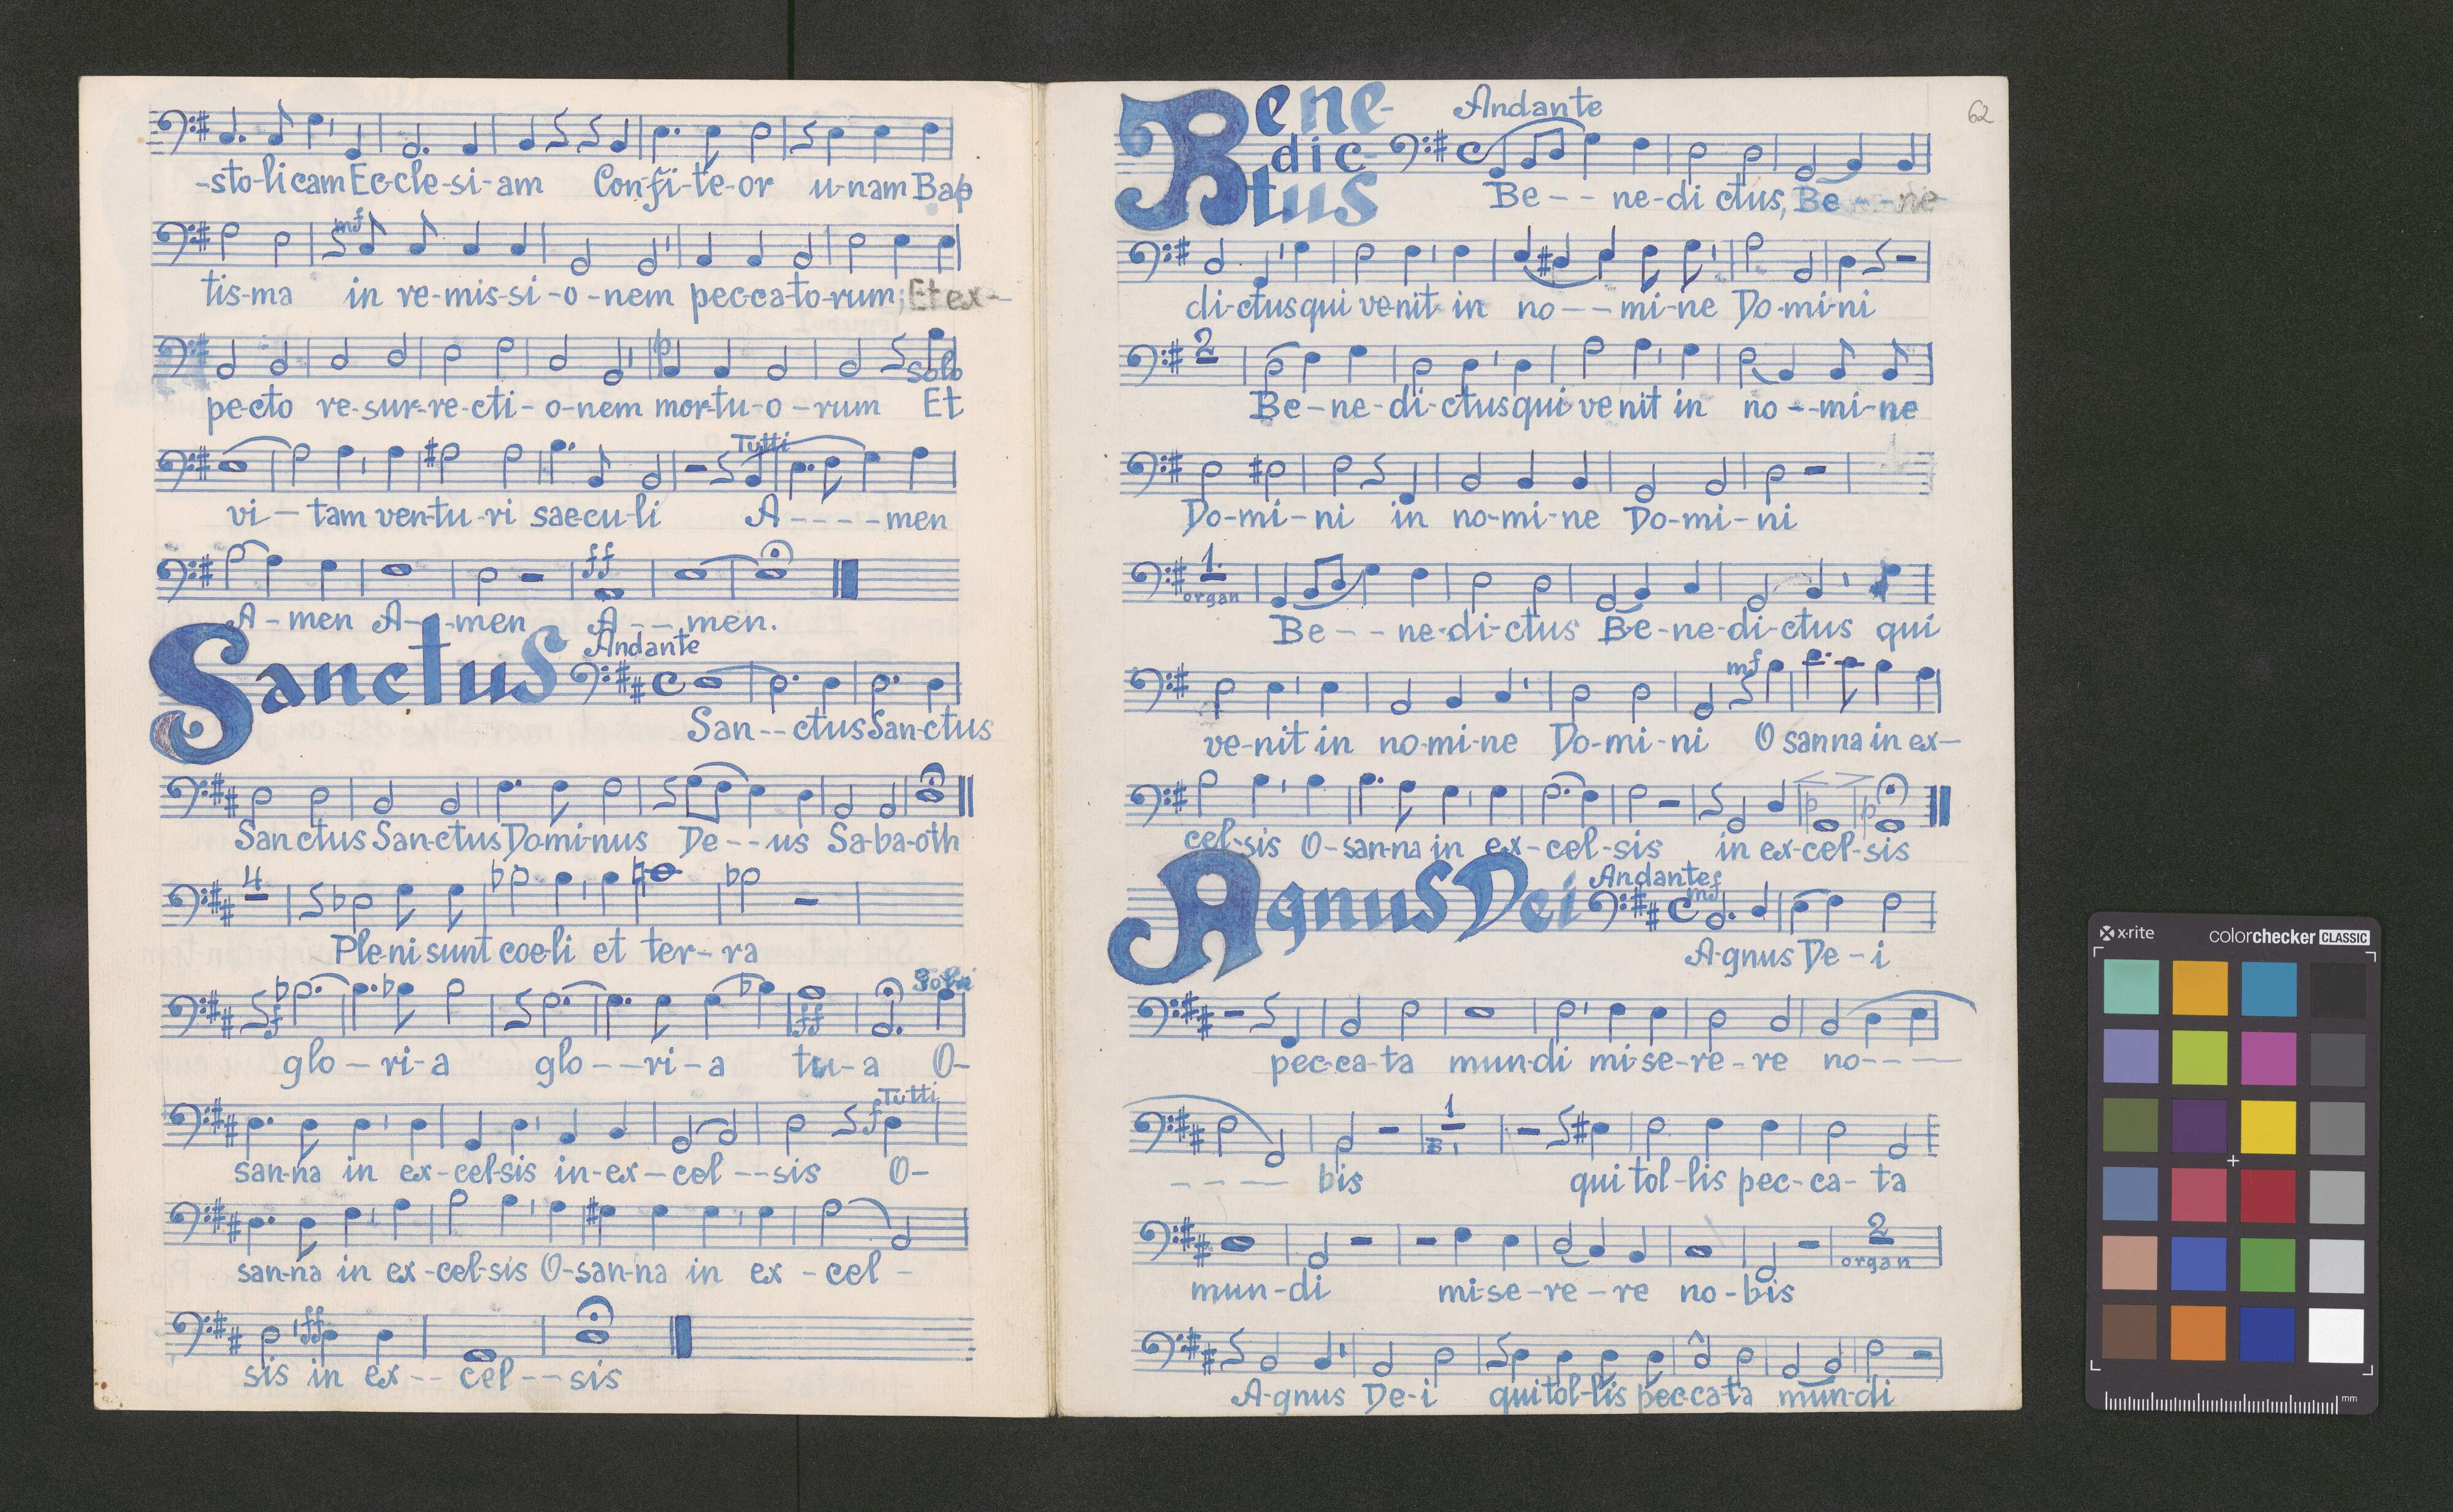 -sto-licam Ec-cle-si-am Con-fi-te-or u-nam Bap
mf
tis-ma in re-mis-si-o-nem pec-ca-to-rum, Et ex-
p Solo
pe-cto re-sur-re-cti-o-nem mor-tu-o-rum Et
Tutti
vi-tam ven-tu-ri sae-cu-li A----men
ff
A-men A--men A--men.
Sanctus Andante
San--ctus San-ctus
Sanctus San-ctus Do-mi-nus De--us Sa-ba-oth
4
Ple-ni sunt coe-li et ter-ra
f ff
glo-ri-a glo--ri-a tu-a O-
Tutti
f
san-na in ex-cel-sis in-ex-cel--sis O-
san-na in ex-cel-sis O-san-na in ex-cel-
ff
sis in ex--cel--sis
62
Bene-
dic-
tus
Andante
Be--ne-di ctus, Be---ne
di-ctus qui ve-nit in no--mi-ne Do-mi-ni
2
Be-ne-di-ctus qui ve nit in no--mi-ne
Do-mi-ni in no-mi-ne Do-mi-ni
1.
organ
Be--ne-di-ctus Be-ne-di-ctus qui
mf
ve-nit in no-mi-ne Do-mi-ni O sanna in ex-
p p
cel-sis O-san-na in ex-cel-sis in ex-cel-sis
Agnus Dei Andante
mf
A-gnus De-i
pec-ca-ta mun-di mi-se-re-re no---
1
---- bis qui tol-lis pec-ca-ta
2
organ
mun-di mi-se-re-re no-bis
A-gnus De-i qui tol-lis pec-ca-ta mun-di
x-rite colorchecker CLASSIC
mm